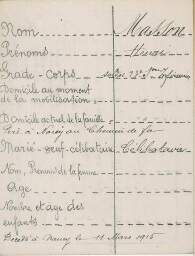 Nom Masson
Prénoms Henri
Grade - Corps
Domicile au moment
de la mobilisation:
Domicile actuel de la famille
au Chemin de fer
Marié-veuf-célibataire Célibataire
Nom, Prénoms de la femme
Age
Nombre et âge des
enfants
Décédé à Nancy le 11 Mars 1915